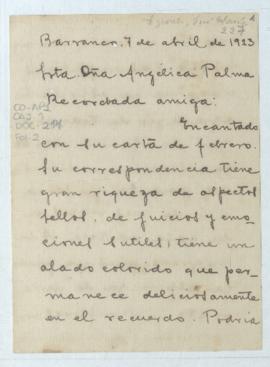 227
Barranco, 7 de abril de 1923
Srta Dña Angélica Palma
Recordada amiga:
CO-AP1
DOC-
FOL-2
Encantado
con su carta de febrero.
Su correspondencia tiene
gran riqueza de aspectos
bellos, de juicios y emo-
ciones sutiles; tiene un
alado colorido que per-
manece deliciosamente
en el recuerdo. Podria